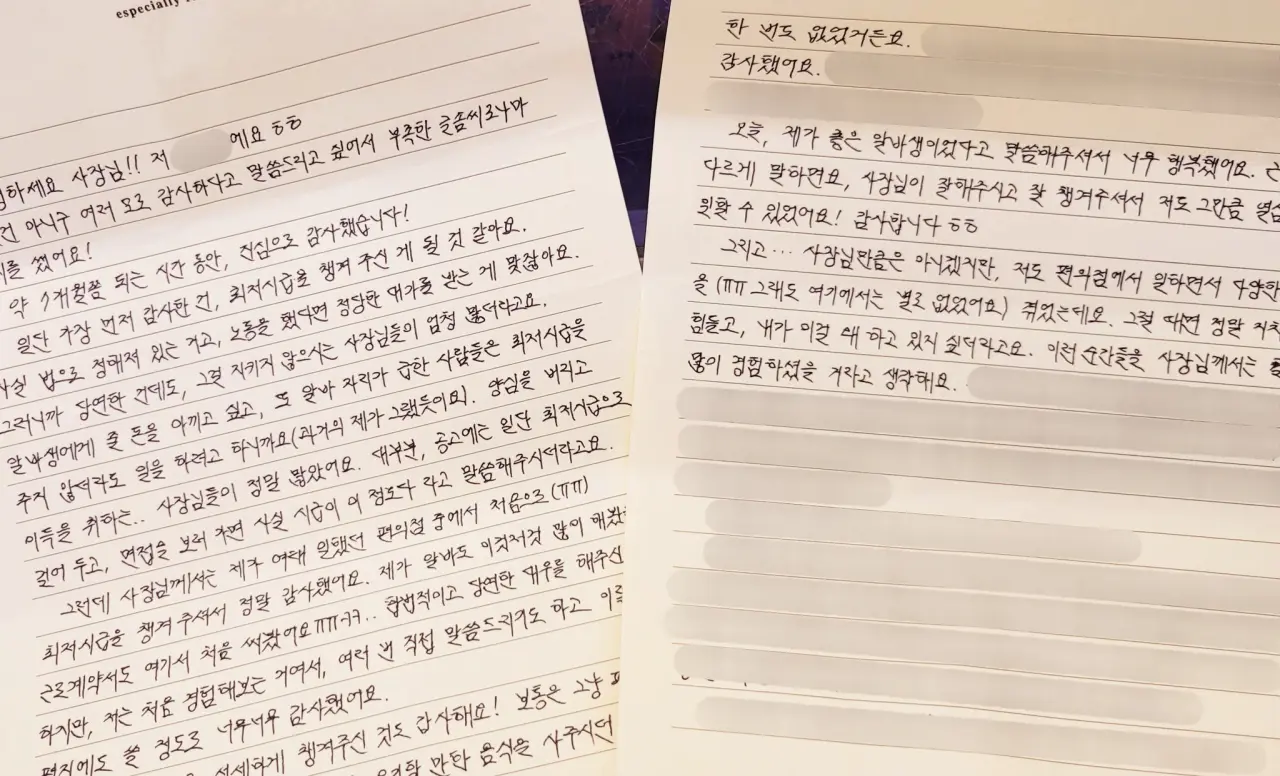 especially
하세요 사장님!! 저 에요 ㅎㅎ
건 아니구 여러 모로 감사하다고 말씀드리고 싶어서 부족한 글솜씨로나마
를 썼어요!
약 1개월쯤 되는 시간 동안, 진심으로 감사했습니다!
일단 가장 먼저 감사한 건, 최저시급을 챙겨 주신 게 될 것 같아요.
사실 법으로 정해져 있는 거고, 노동을 했다면 정당한 대가를 받는 게 맞잖아요.
그러니까 당연한 건데도, 그걸 지키지 않으시는 사장님들이 엄청 많더라고요.
알바생에게 줄 돈을 아끼고 싶고, 또 알바 자리가 급한 사람들은 최저시급을
주지 않더라도 일을 하려고 하니까요(과거의 제가 그랬듯이요). 양심을 버리고
이득을 취하는.. 사장님들이 정말 많았어요. 대부분, 공고에는 일단 최저시급으로
걸어 두고, 면접을 보러 가면 사실 시급이 이 정도다 라고 말씀해주시더라고요.
그런데 사장님께서는 제가 여태 일했던 편의점 중에서 처음으로(ㅠㅠ)
최저시급을 챙겨 주셔서 정말 감사했어요. 제가 알바도 이것저것 많이 해봤
근로계약서도 여기서 처음 써봤어요ㅠㅠㅋㅋ.. 합법적이고 당연한 대우를 해주신
하지만, 저는 처음 경험해보는 거여서, 여러 번 직접 말씀드리기도 하고 이렇
편지에도 쓸 정도로 너무너무 감사했어요.
섬세하게 챙겨주신 것도 감사해요! 보통은 그냥
만한 음식을 사주시던
한 번도 없었거든요.
감사했어요.
오늘, 제가 좋은 알바생이었다고 말씀해주셔서 너무 행복했어요.
다르게 말하면요, 사장님이 잘해주시고 잘 챙겨주셔서 저도 그만큼 열심
일할 수 있었어요! 감사합니다 ㅎㅎ
그리고... 사장님만큼은 아니겠지만, 저도 편의점에서 일하면서 다양한
을 (ㅠㅠ 그래도 여기에서는 별로 없었어요) 겪었는데요. 그럴 때면 정말 지치
힘들고, 내가 이걸 왜 하고 있지 싶더라고요. 이런 순간들을 사장님께서는
많이 경험하셨을 거라고 생각해요.